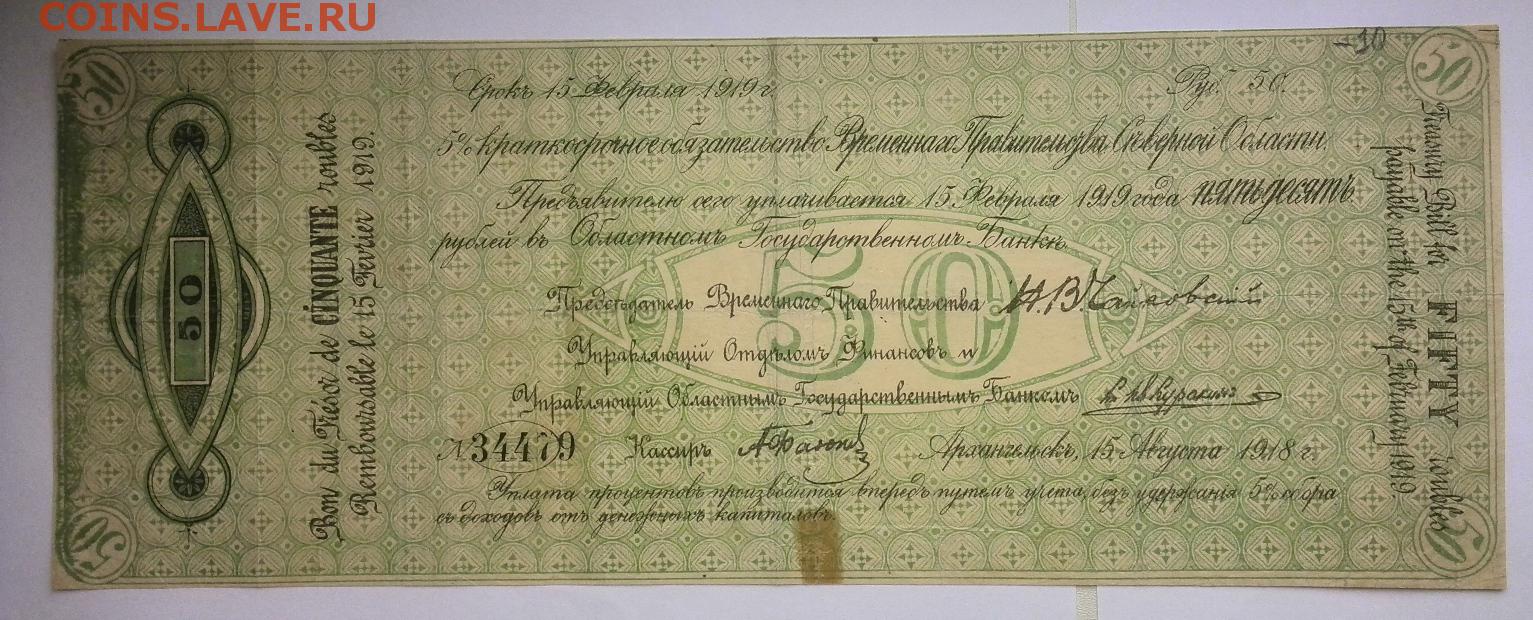 COINS.LAVE.RU
-10
50
50
Срокъ 15 Февраля 1919 г.
Руб. 50.
5% краткосрочное обязательство Временнаго Правительства Сѣверной Области.
Предъявителю сего уплачивается 15 Февраля 1919 года пятьдесятъ
рублей въ Областномъ Государственномъ Банкѣ.
50
Предсѣдатель Временнаго Правительства Н. В. Чайковскій
Управляющій Отдѣломъ Финансовъ и
Управляющій Областнымъ Государственнымъ Банкомъ
№ 34479 Кассиръ
Архангельскъ, 15 Августа 1918 г.
Уплата процентовъ производится впередъ путемъ учета, безъ удержанія 5% сбора
съ доходовъ отъ денежныхъ капиталовъ.
50
Bon du Trésor de CINQUANTE roubles
Remboursable le 15 Fevrier 1919.
Treasury Bill for FIFTY roubles
payable on the 15th of February 1919.
50
50